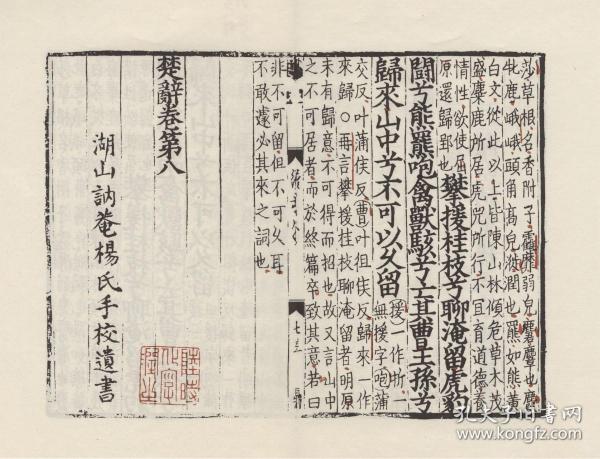 莎草根名香附子霍靡弱皃麏麚也麚
牝鹿峨峨頭角髙皃漇漇潤也羆如熊黃
白文從此以上皆陳山林傾危草木茂
盛麋鹿所居虎兕所行不宜育道德養
情性欲使屈
原還歸郢也
攀援桂枝兮聊淹留虎豹
鬬兮熊羆咆禽獸駭兮亡其曹王孫兮
歸來山中兮不可以乆留
援一作折一
無援字咆蒲
交反叶蒲侯反曹叶徂侯反歸來一作
來歸○再言攀援桂枝聊淹留者明原
未有歸意不可得而招也故又言山中
之不可居者而於然篇卒致其意若曰
非不可留但不可乆耳
不敢遽必其來之詞也
七三
楚辭卷第八
湖山訥菴楊氏手校遺書
孔夫子旧书网
www.kongfz.com